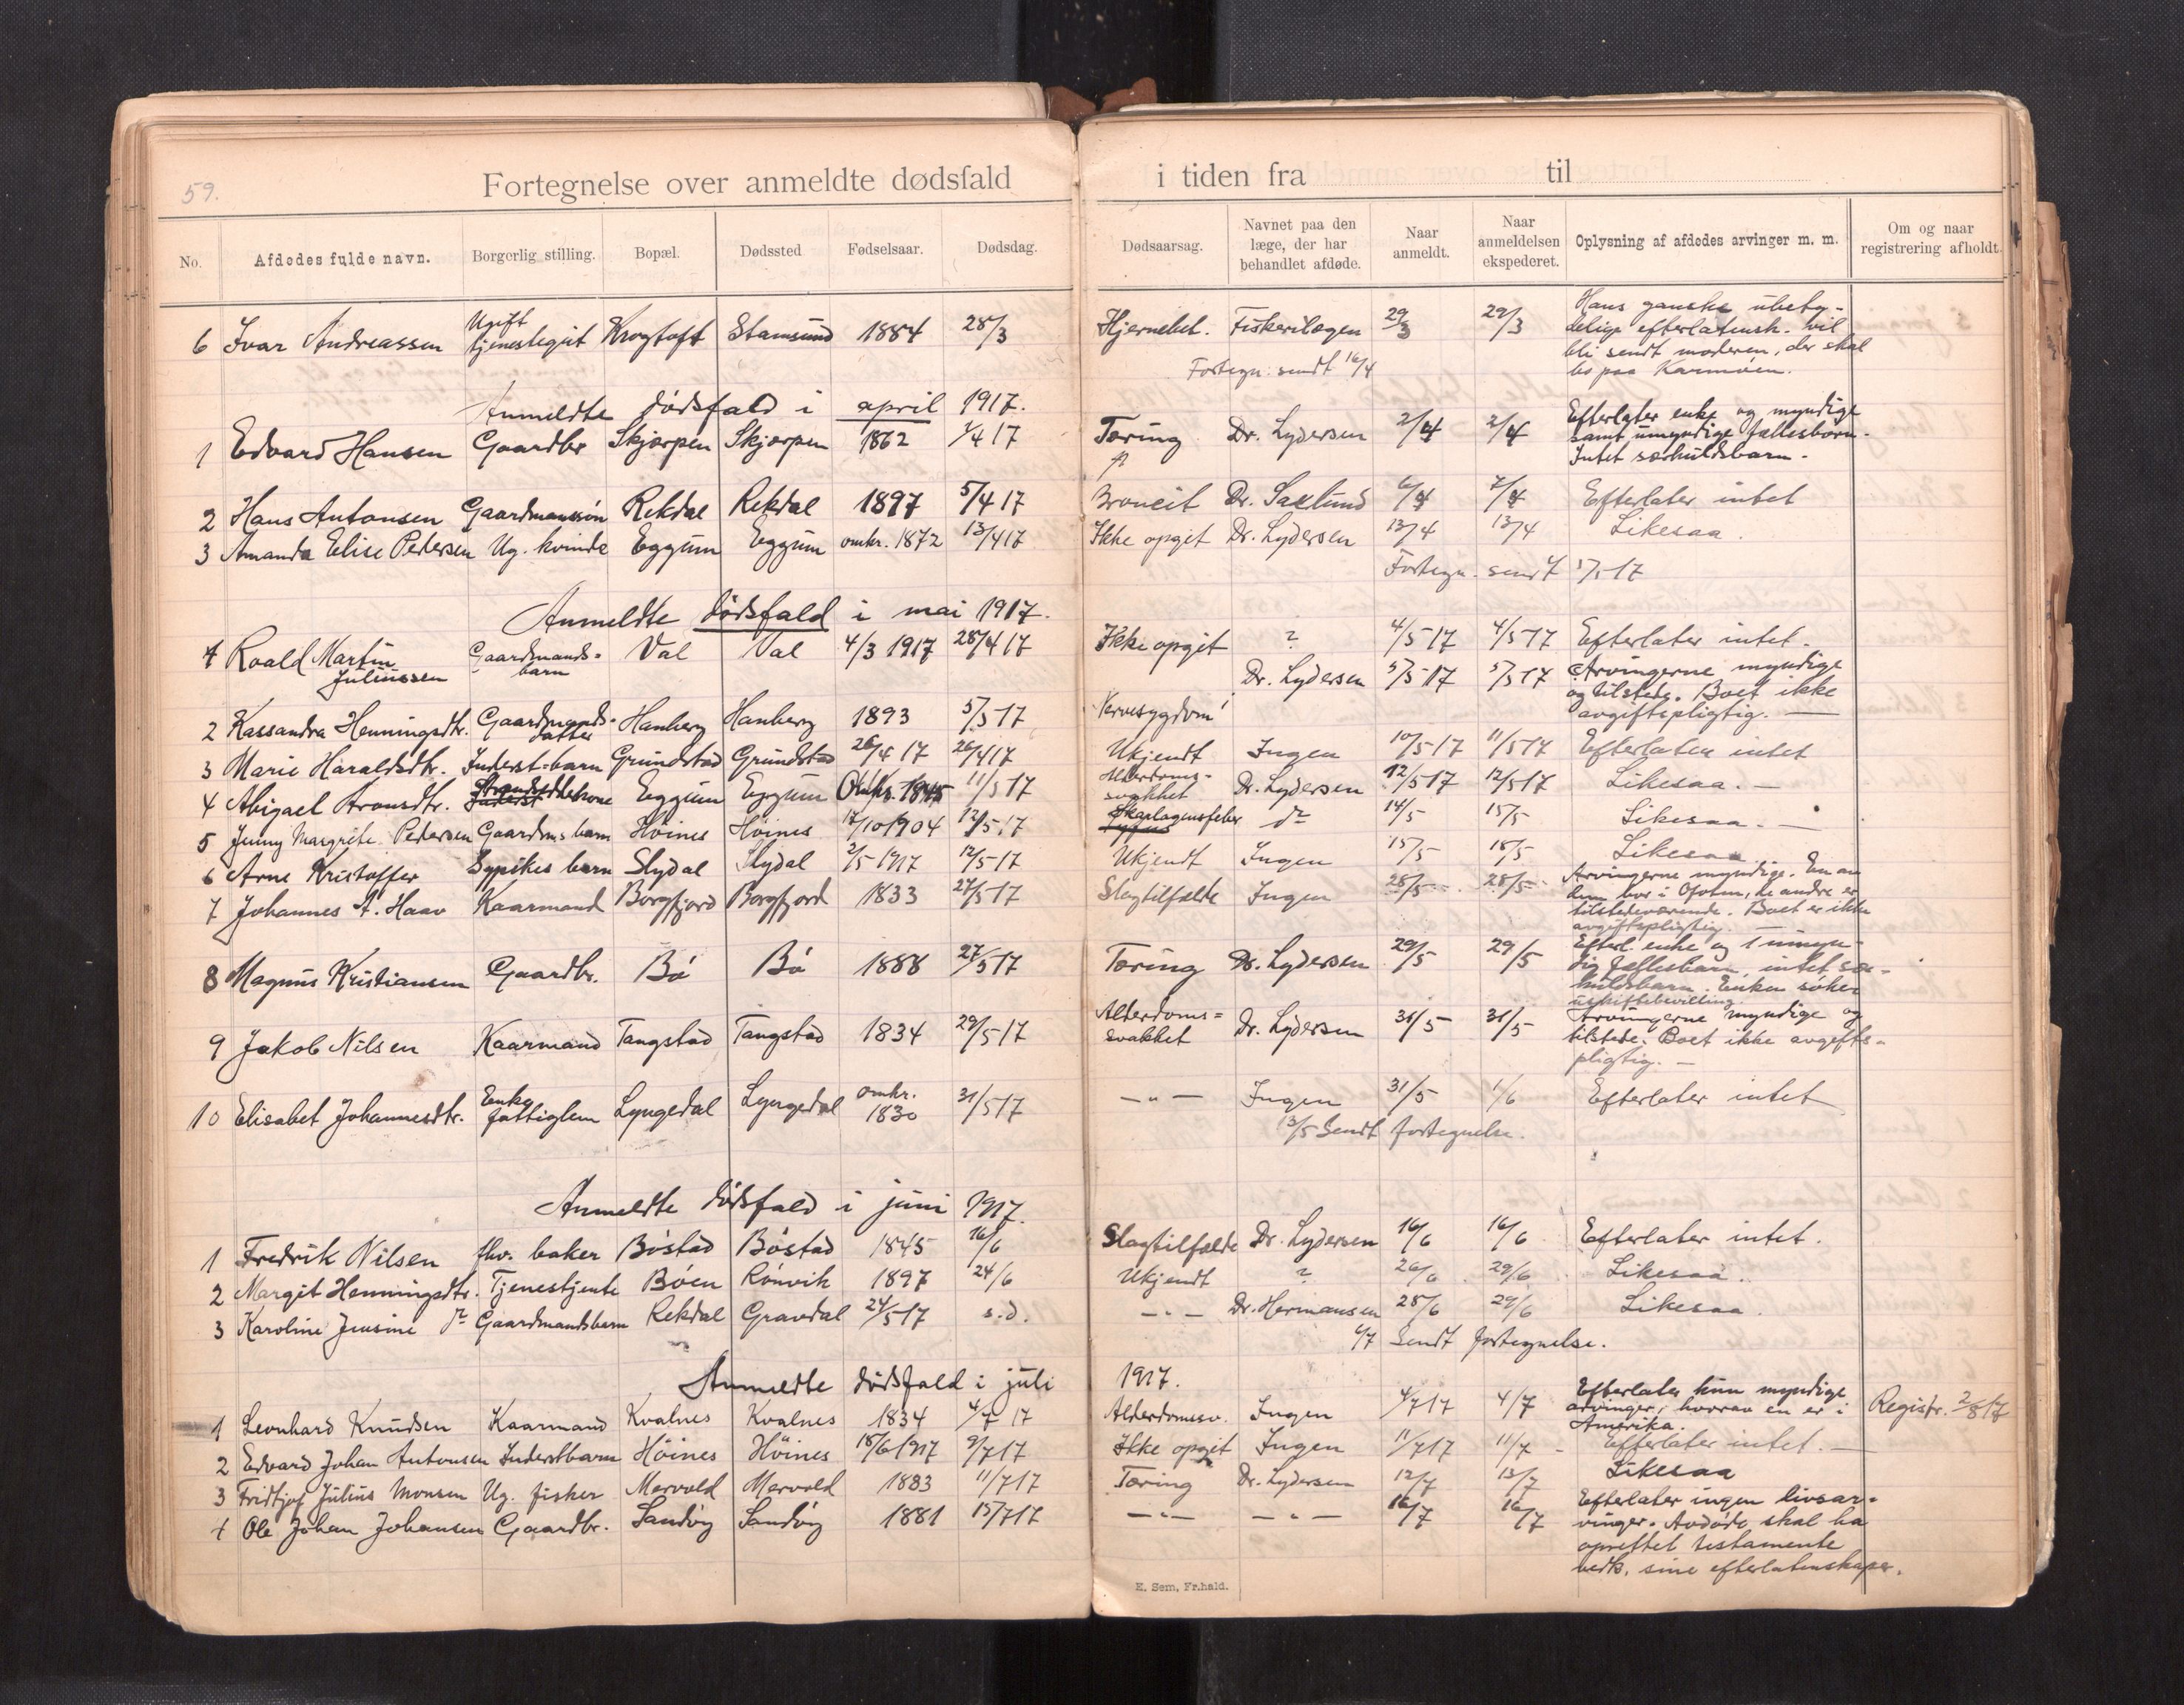 59.
Fortegnelse over anmeldte dødsfald i tiden fra til
No. Afdødes fulde navn. Borgerlig stilling. Bopæl. Dødssted Fødselsaar. Dødsdag. Dødsaarsag. Navnet paa den læge, der har behandlet afdøde. Naar anmeldt. Naar anmeldelsen ekspederet. Oplysning af afdødes arvinger m. m. Om og naar registrering afholdt.
6 Ivar Andreassen Ugift tjenestegut Krogtoft Stamsund 1884 28/3 Hjernebet. Fiskerilægen 29/3 29/3 Hans ganske ubety-
delige efterlatensk. vil
bli sendt moderen, der skal
bo paa Karmøen.
Fortegn. sendt 16/4
Anmeldte dødsfald i april 1917.
1 Edvard Hansen Gaardbr Skjærpen Skjærpen 1862 1/4 17 Tæring Dr. Lydersen 2/4 2/4 Efterlater enke og myndige
samt umyndige fællesbørn.
Intet særkuldsbarn.
2 Hans Antonsen Gaardmanssøn Rekdal Rekdal 1897 5/4 17 Broncit Dr. Saxlund 6/4 7/4 Efterlater intet
3 Amanda Elise Pedersen Ug. kvinde Eggum Eggum omkr. 1872 13/4 17 Ikke opgit Dr. Lydersen 13/4 13/4 Likesaa.
Fortegn. sendt 5/5 17
Anmeldte dødsfald i mai 1917.
1 Roald Martin Juliussen Gaardmands-barn Val Val 4/3 1917 28/4 17 Ikke opgit ? 4/5 17 4/5 17 Efterlater intet.
2 Kassandra Henningsdtr. Gaardmands-datter Hanberg Hanberg 1893 5/5 17 Nervesygdom Dr. Lydersen 5/5 17 5/5 17 Arvingerne myndige
og tilstede. Boet ikke
avgiftspligtig.
3 Marie Haraldsdtr. Inderst-barn Grundstad Grundstad 26/4 17 26/4 17 Ukjendt Ingen 10/5 17 11/5 17 Efterlater intet
4 Abigael Aronsdtr. Eggum Eggum Omkr. 1845 11/5 17 Alderdoms-svakhet Dr. Lydersen 12/5 17 12/5 17 Likesaa.
5 Jenny Margrete Pedersen Gaardms barn Höines Höines 17/10 1904 12/5 17 Skarlagensfeber do 14/5 15/5 Likesaa.
6 Arne Kristoffer Sypikes barn Slydal Slydal 2/5 1917 12/5 17 Ukjendt Ingen 15/5 15/5 Likesaa
7 Johannes A. Haav Kaarmand Borgfjord Borgfjord 1833 27/5 17 Slagtilfælde Ingen 28/5 28/5 Arvingerne myndige. En av
dem bor i Ofoten, de andre er
tilstedeværende. Boet er ikke
avgiftspligtig.
8 Magnus Kristiansen Gaardbr. Bö Bö 1888 27/5 17 Tæring Dr. Lydersen 29/5 29/5 Efterl. enke og 1 umyn-
dig fællesbarn, intet sær-
kuldsbarn. Enken søker
uskiftebevilling.
9 Jakob Nilsen Kaarmand Tangstad Tangstad 1834 29/5 17 Alderdoms=svakhet Dr. Lydersen 31/5 31/5 Arvingerne myndige og
tilstede. Boet ikke avgifts-
pligtig.
10 Elisabet Johannesdtr. Enke fattiglem Lyngedal Lyngedal omkr. 1830 31/5 17 — " — Ingen 31/5 1/6 Efterlater intet
13/5 Sendt fortegnelse.
Anmeldte dødsfald i juni 1917.
1 Fredrik Nilsen fhv. baker Böstad Böstad 1845 16/6 Slagtilfælde Dr. Lydersen 16/6 16/6 Efterlater intet.
2 Margit Henningsdtr. Tjenestjente Böen Rönvik 1897 24/6 Ukjendt ? 26/6 29/6 Likesaa.
3 Karoline Jensine Gaardmandsbarn Rekdal Gravdal 24/5 17 s.d. — " — Dr. Hermansen 28/6 29/6 Likesaa.
6/7 Sendt fortegnelse.
Anmeldte dødsfald i juli 1917.
1 Leonhard Knudsen Kaarmand Kvalnes Kvalnes 1834 4/7 17 Alderdomssv. Ingen 4/7 17 4/7 Efterlater kun myndige
arvinger, hvorav en er i
Amerika. Registr. 2/8 17
2 Edvard Johan Antonsen Inderstbarn Höines Höines 18/6 1917 9/7 17 Ikke opgit Ingen 11/7 17 11/7 Efterlater intet.
3 Fridtjof Julius Monsen Ug. fisker Mervold Mervold 1883 11/7 17 Tæring Dr. Lydersen 12/7 13/7 Likesaa
4 Ole Johan Johansen Gaardbr. Sandöy Sandöy 1881 15/7 17 — " — — " — 16/7 16/7 Efterlater ingen livsar-
vinger. Avdöde skal ha
oprettet testamente
vedk. sine efterlatenskaper.
E. Sem, Fr.hald.